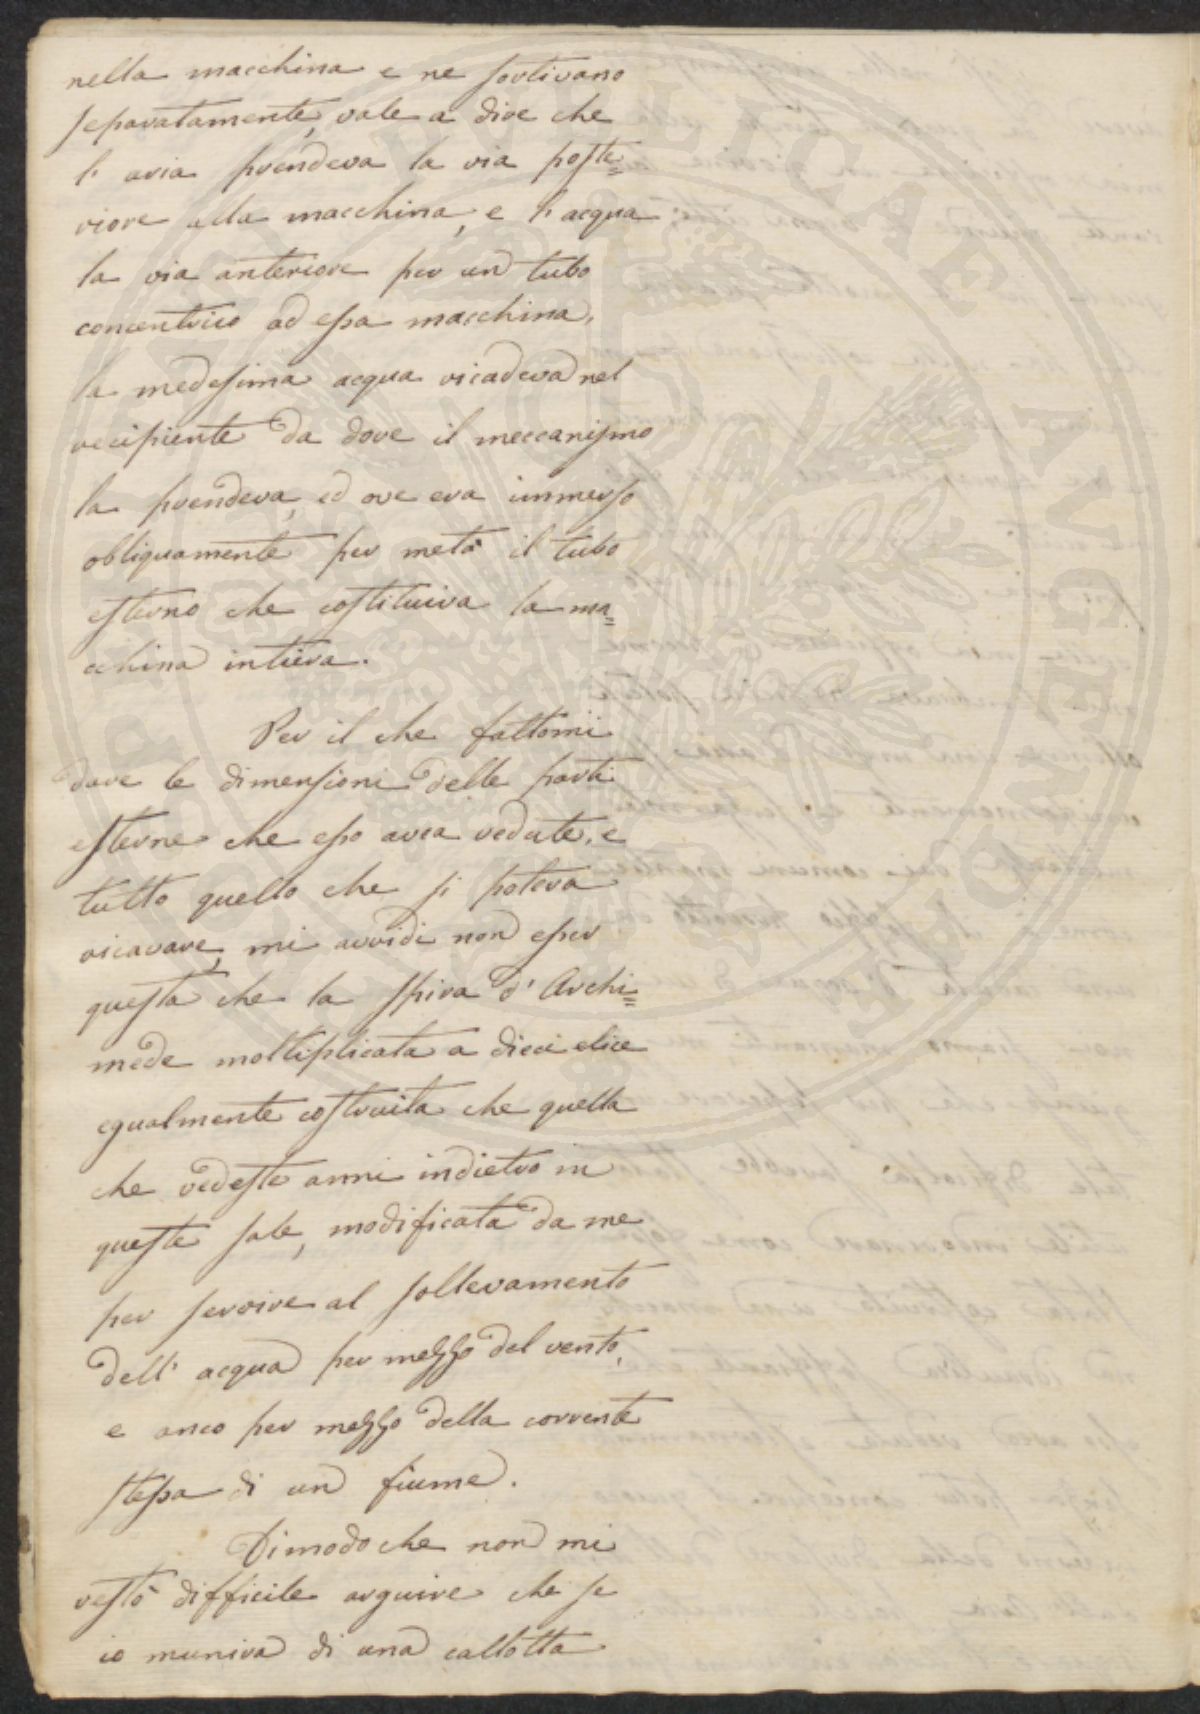 nella macchina e ne sortivano
separatamente, vale a dire che
l'aria prendeva la via poste=
riore alla macchina, e l'acqua
la via anteriore per un tubo
concentrico ad essa macchina,
la medesima acqua ricadeva nel
recipiente da dove il meccanismo
la prendeva, ed ove era immerso
obliquamente per metà il tubo
esterno che costituiva la ma=
cchina intiera.
Per il che fattomi
dare le dimensioni delle parti
esterne che esso avea vedute, e
tutto quello che si poteva
ricavare, mi avvidi non esser
questa che la spira d'Archi=
mede moltiplicata a dieci elice
egualmente costruita che quella
che vedeste anni indietro in
queste sale, modificata da me
per servire al sollevamento
dell'acqua per mezzo del vento,
e anco per mezzo della corrente
stessa di un fiume.
Dimodoche non mi
restò difficile arguire che se
io muniva di una callotta